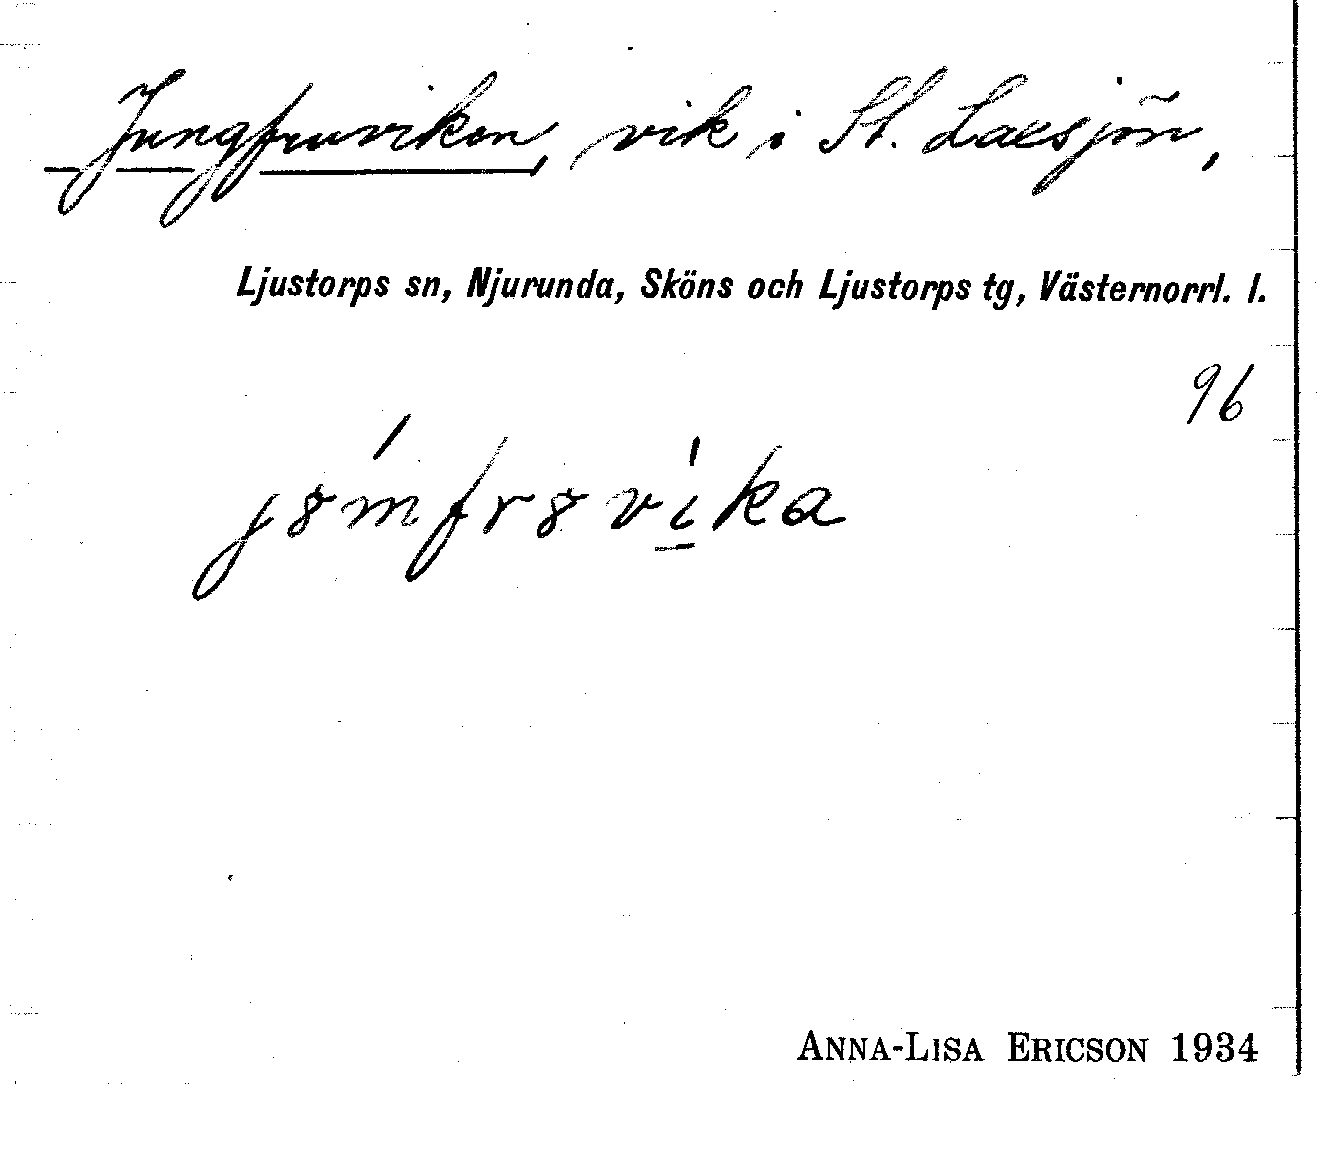 Jungfruviken, vik i St. Laxsjön,
Ljustorps sn, Njurunda, Sköns och Ljustorps tg, Västernorrl. l.
96
jȣ́mfrȣvi̲̍ka
ANNA-LISA ERICSON 1934